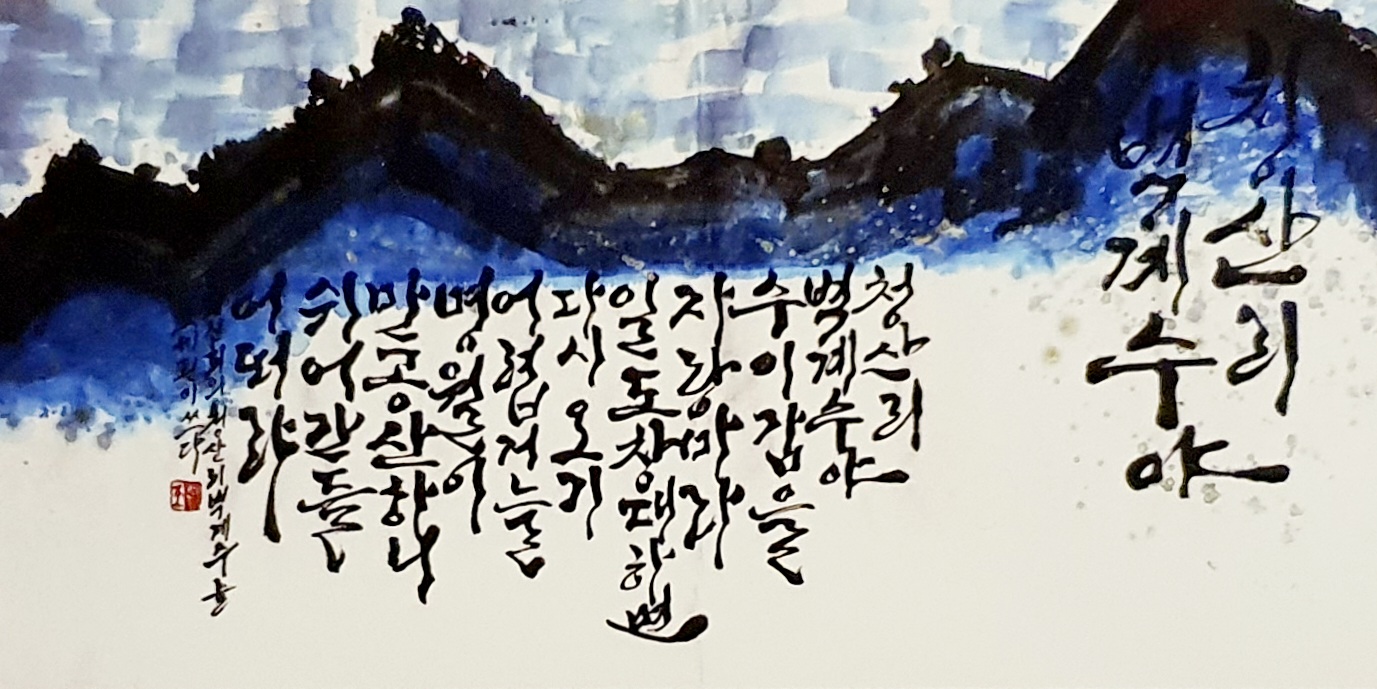 청산리
벽계수야
청산리
벽계수야
수이감을
자랑마라
일도창해하면
다시 오기
어렵거늘
명월이
만공산하니
쉬어간들
어떠랴
청산리벽계수
쓰다